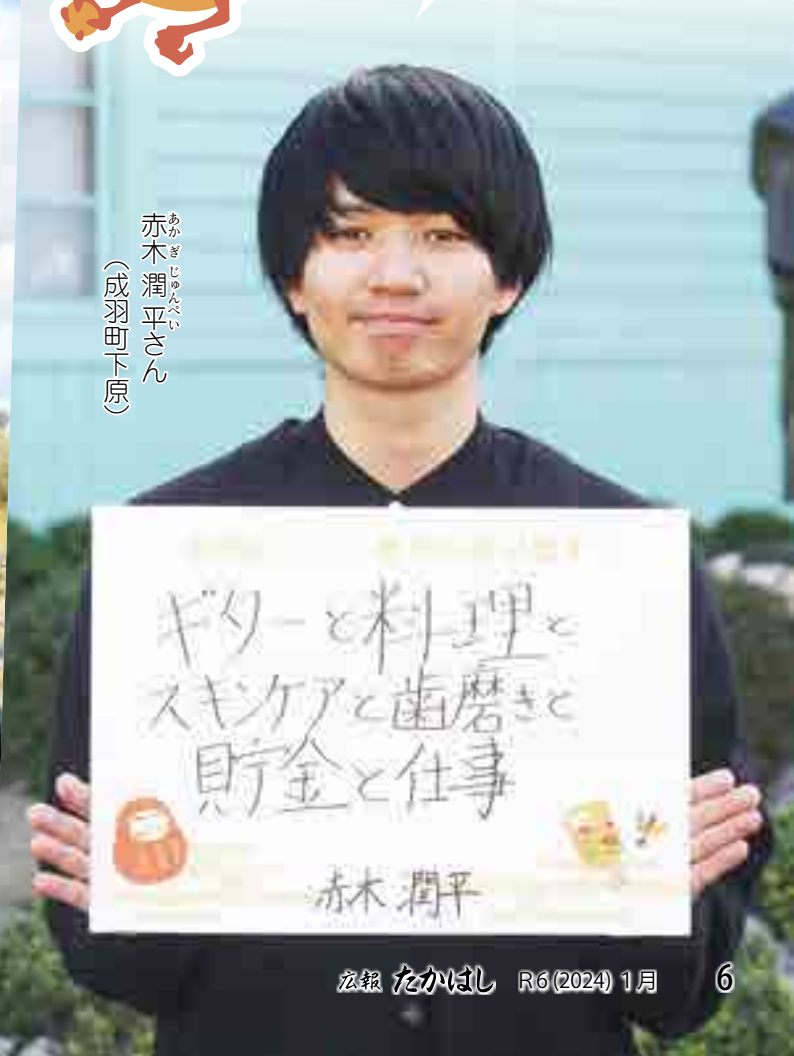 赤木 潤平さん
あかぎ じゅんぺい
（成羽町下原）
ギターと料理と
スキンケアと歯磨きと
貯金と仕事
赤木 潤平
広報 たかはし R6(2024) 1月 6